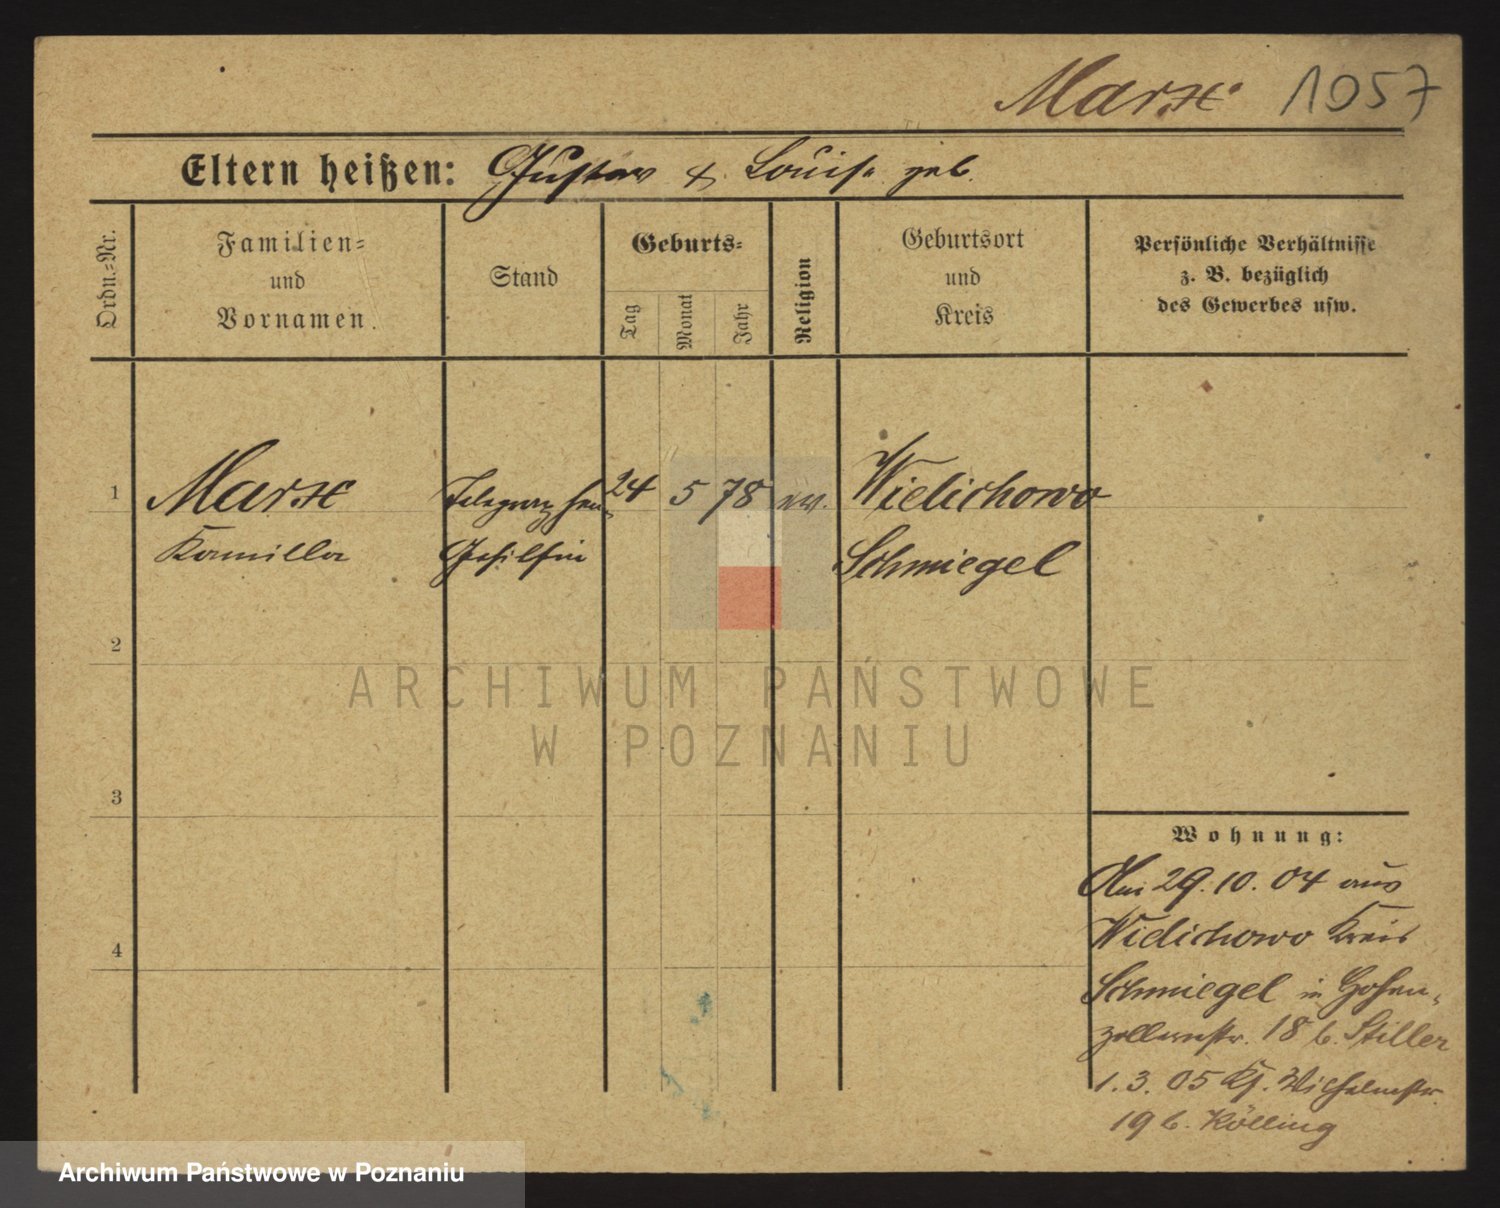 Marx 1057
Eltern heißen: Gustav & Louise geb.
Ordn.-Nr.
Familien-
und
Vornamen.
Stand
Geburts-
Tag
Monat
Jahr
Religion
Geburtsort
und
Kreis
Persönliche Verhältnisse
z. B. bezüglich
des Gewerbes usw.
1 Marx Telegraphen- 24 5 78 ev. Wielichowo
Kamilla Gehilfin Schmiegel
2
ARCHIWUM PAŃSTWOWE
W POZNANIU
3
Wohnung:
Am 29.10.04 aus
4 Wielichowo Kreis
Schmiegel in Hohen-
zollernstr. 18 b. Stiller
1.3.05 Wilhelmstr.
19 b. Kölling
Archiwum Państwowe w Poznaniu